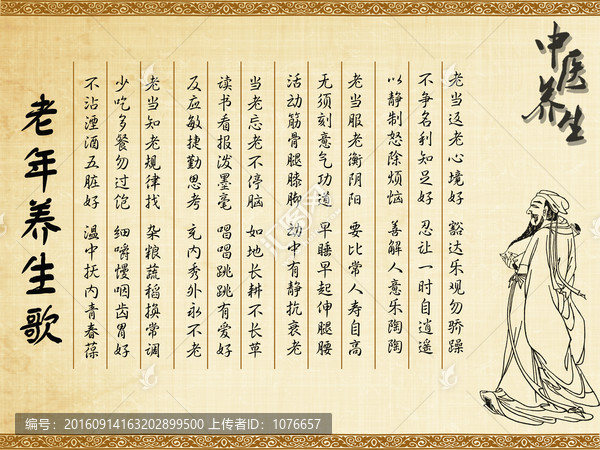 中医养生
老当返老心境好 豁达乐观勿骄躁
不争名利知足好 忍让一时自逍遥
以静制怒除烦恼 善解人意乐陶陶
老当服老衡阴阳 要比常人寿自高
无须刻意气功道 早睡早起伸腿腰
活动筋骨腿膝脚 动中有静抗衰老
当老忘老不停脑 如地长耕不长草
读书看报泼墨毫 唱唱跳跳有爱好
反应敏捷勤思考 充内秀外永不老
老当知老规律找 杂粮蔬稻换常调
少吃多餐勿过饱 细嚼慢咽齿胃好
不沾湮酒五脏好 温中扶内青春葆
老年养生歌
编号：20160914163202899500 上传者ID：1076657